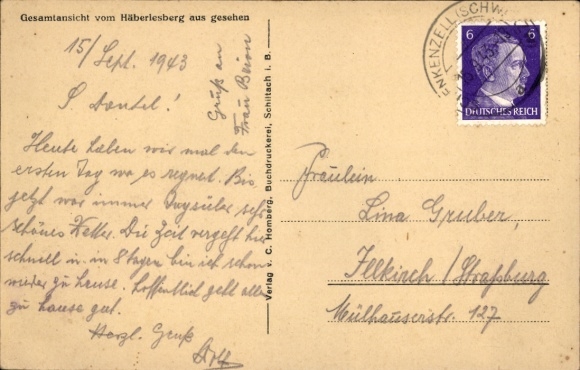 Gesamtansicht vom Häberlesberg aus gesehen
15/Sept. 1943
Gruß an
Frau
Heute haben wir mal den
ersten Tag wo es regnet. Bis
jetzt war immer tagsüber sehr
schönes Wetter. Die Zeit vergeht hier
schnell u. in 8 Tagen bin ich schon
wieder zu Hause. Hoffentlich geht alles
zu Hause gut.
Herzl. Gruß
Verlag v. C. Homberg, Buchdruckerei, Schiltach i. B.
ENKENZELL (SCHW
6 6
DEUTSCHES REICH
Fräulein
Lina Gruber,
Illkirch / Straßburg
Mülhauserstr. 127